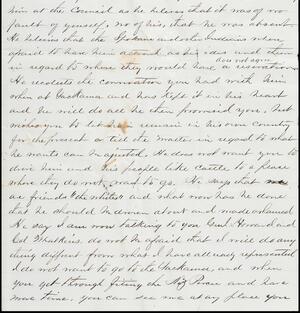 him at the Council as he believes that it was of no
fault of yourself, no of his, that he was absent.
He believes that the Spokane and other Indians were
afraid to have him around as he did and
does not agree
in regard to where they would have a reservation
He recollects the conversation you had with him
when at Yackama and has kept it in his heart
and he will do all he then promised you. but
wishes you to let him remain in his own country
for the present or till the matter in regard to what
he wants can be adjusted. He does not want you to
drive him and his people like cattle to a place
where they do not want to go. He says that
are friends to the whites and what now has he done
that he should be driven about and made ashamed.
He say I am now talking to you Genl. Howard and
Col Watkins. do not be afraid that I will do any
thing different from what I have always represented
I do not want to go to the Yackama, and when
you get through fixing the Nez Perce and have
more time. you can see me at any place you